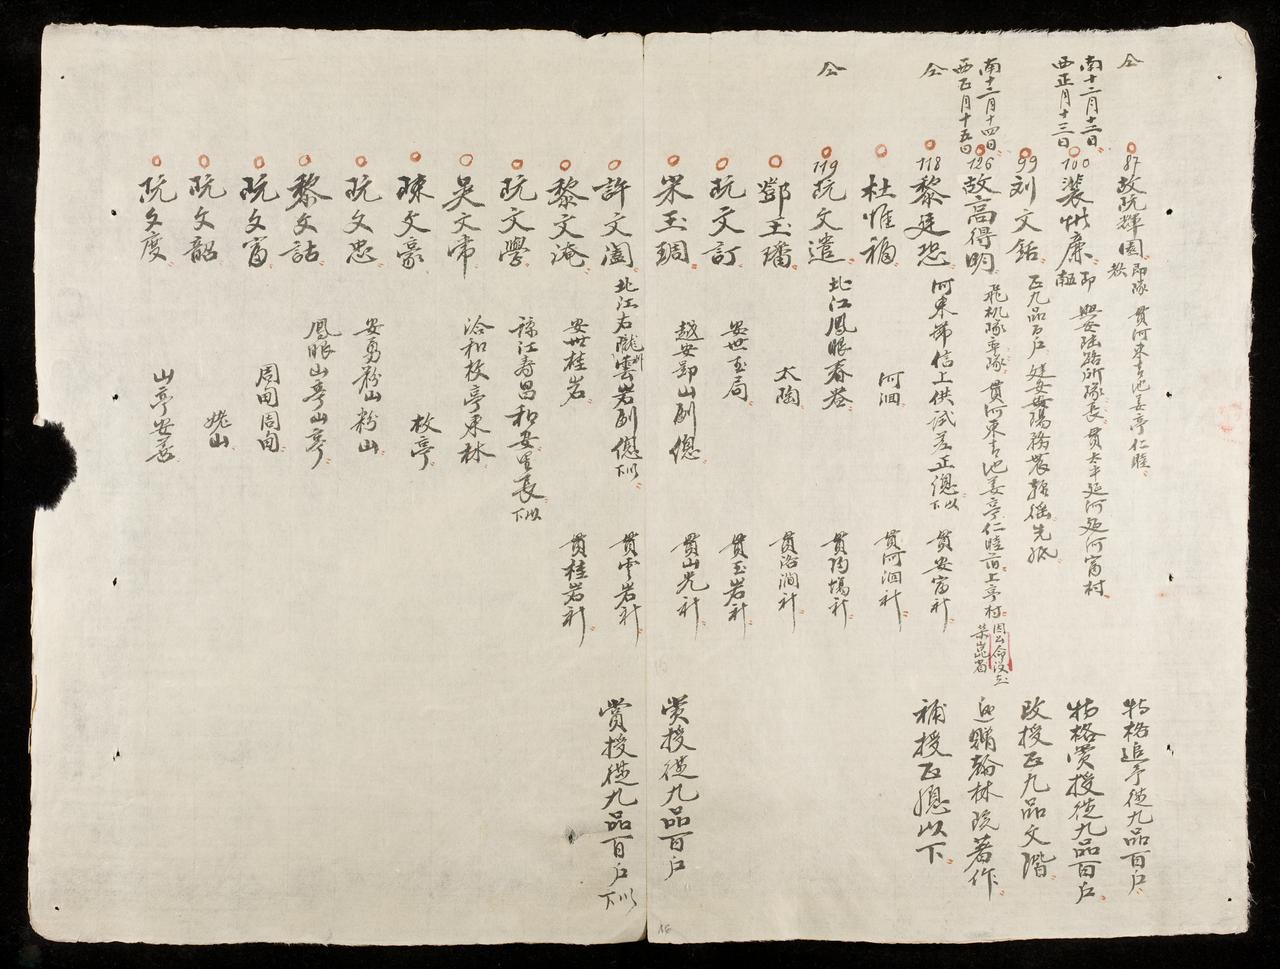 仝
87
故阮輝園 即隊教 貫河東青池姜亭仁睦
特格追予從九品百戶
南十二月十二日
西正月十三日
100
裴惟廉 即 興安陸路所隊長 貫太平延河延河富村
特格賞授從九品百戶
99
刘文銛 正九品百戶 建安安陽務農
改授正九品文階
南十二月十四日
西正月十五日
126
故高得明 飛机隊 貫河東青池姜亭仁睦 上亭村
追贈翰林院著作
仝
118
黎廷恐 河東 信上供試差正總 以下 貫安富社
補授正總以下
杜惟福 河洄 貫河洄社
仝
119
阮文遣 北江鳳眼春
鄧玉璠 太陶 貫洛澗社
阮文訂 安世玉局 貫玉岩社
宋玉琱 越安 山副總 貫山光社
賞授從九品百戶
許文闔 北江右隴雲岩副總 以下 貫雲岩社
賞授從九品百戶 以下
黎文淹 安世桂岩 貫桂岩社
阮文學 諒江壽昌和安里長 以下
吳文常 洽和枚亭東林
陳文豪 枚亭
阮文忠 安勇粉山粉山
黎文詁 鳳眼山亭山亭
阮文富 周甸周甸
阮文韶 姥山
阮文度 山亭安善
16